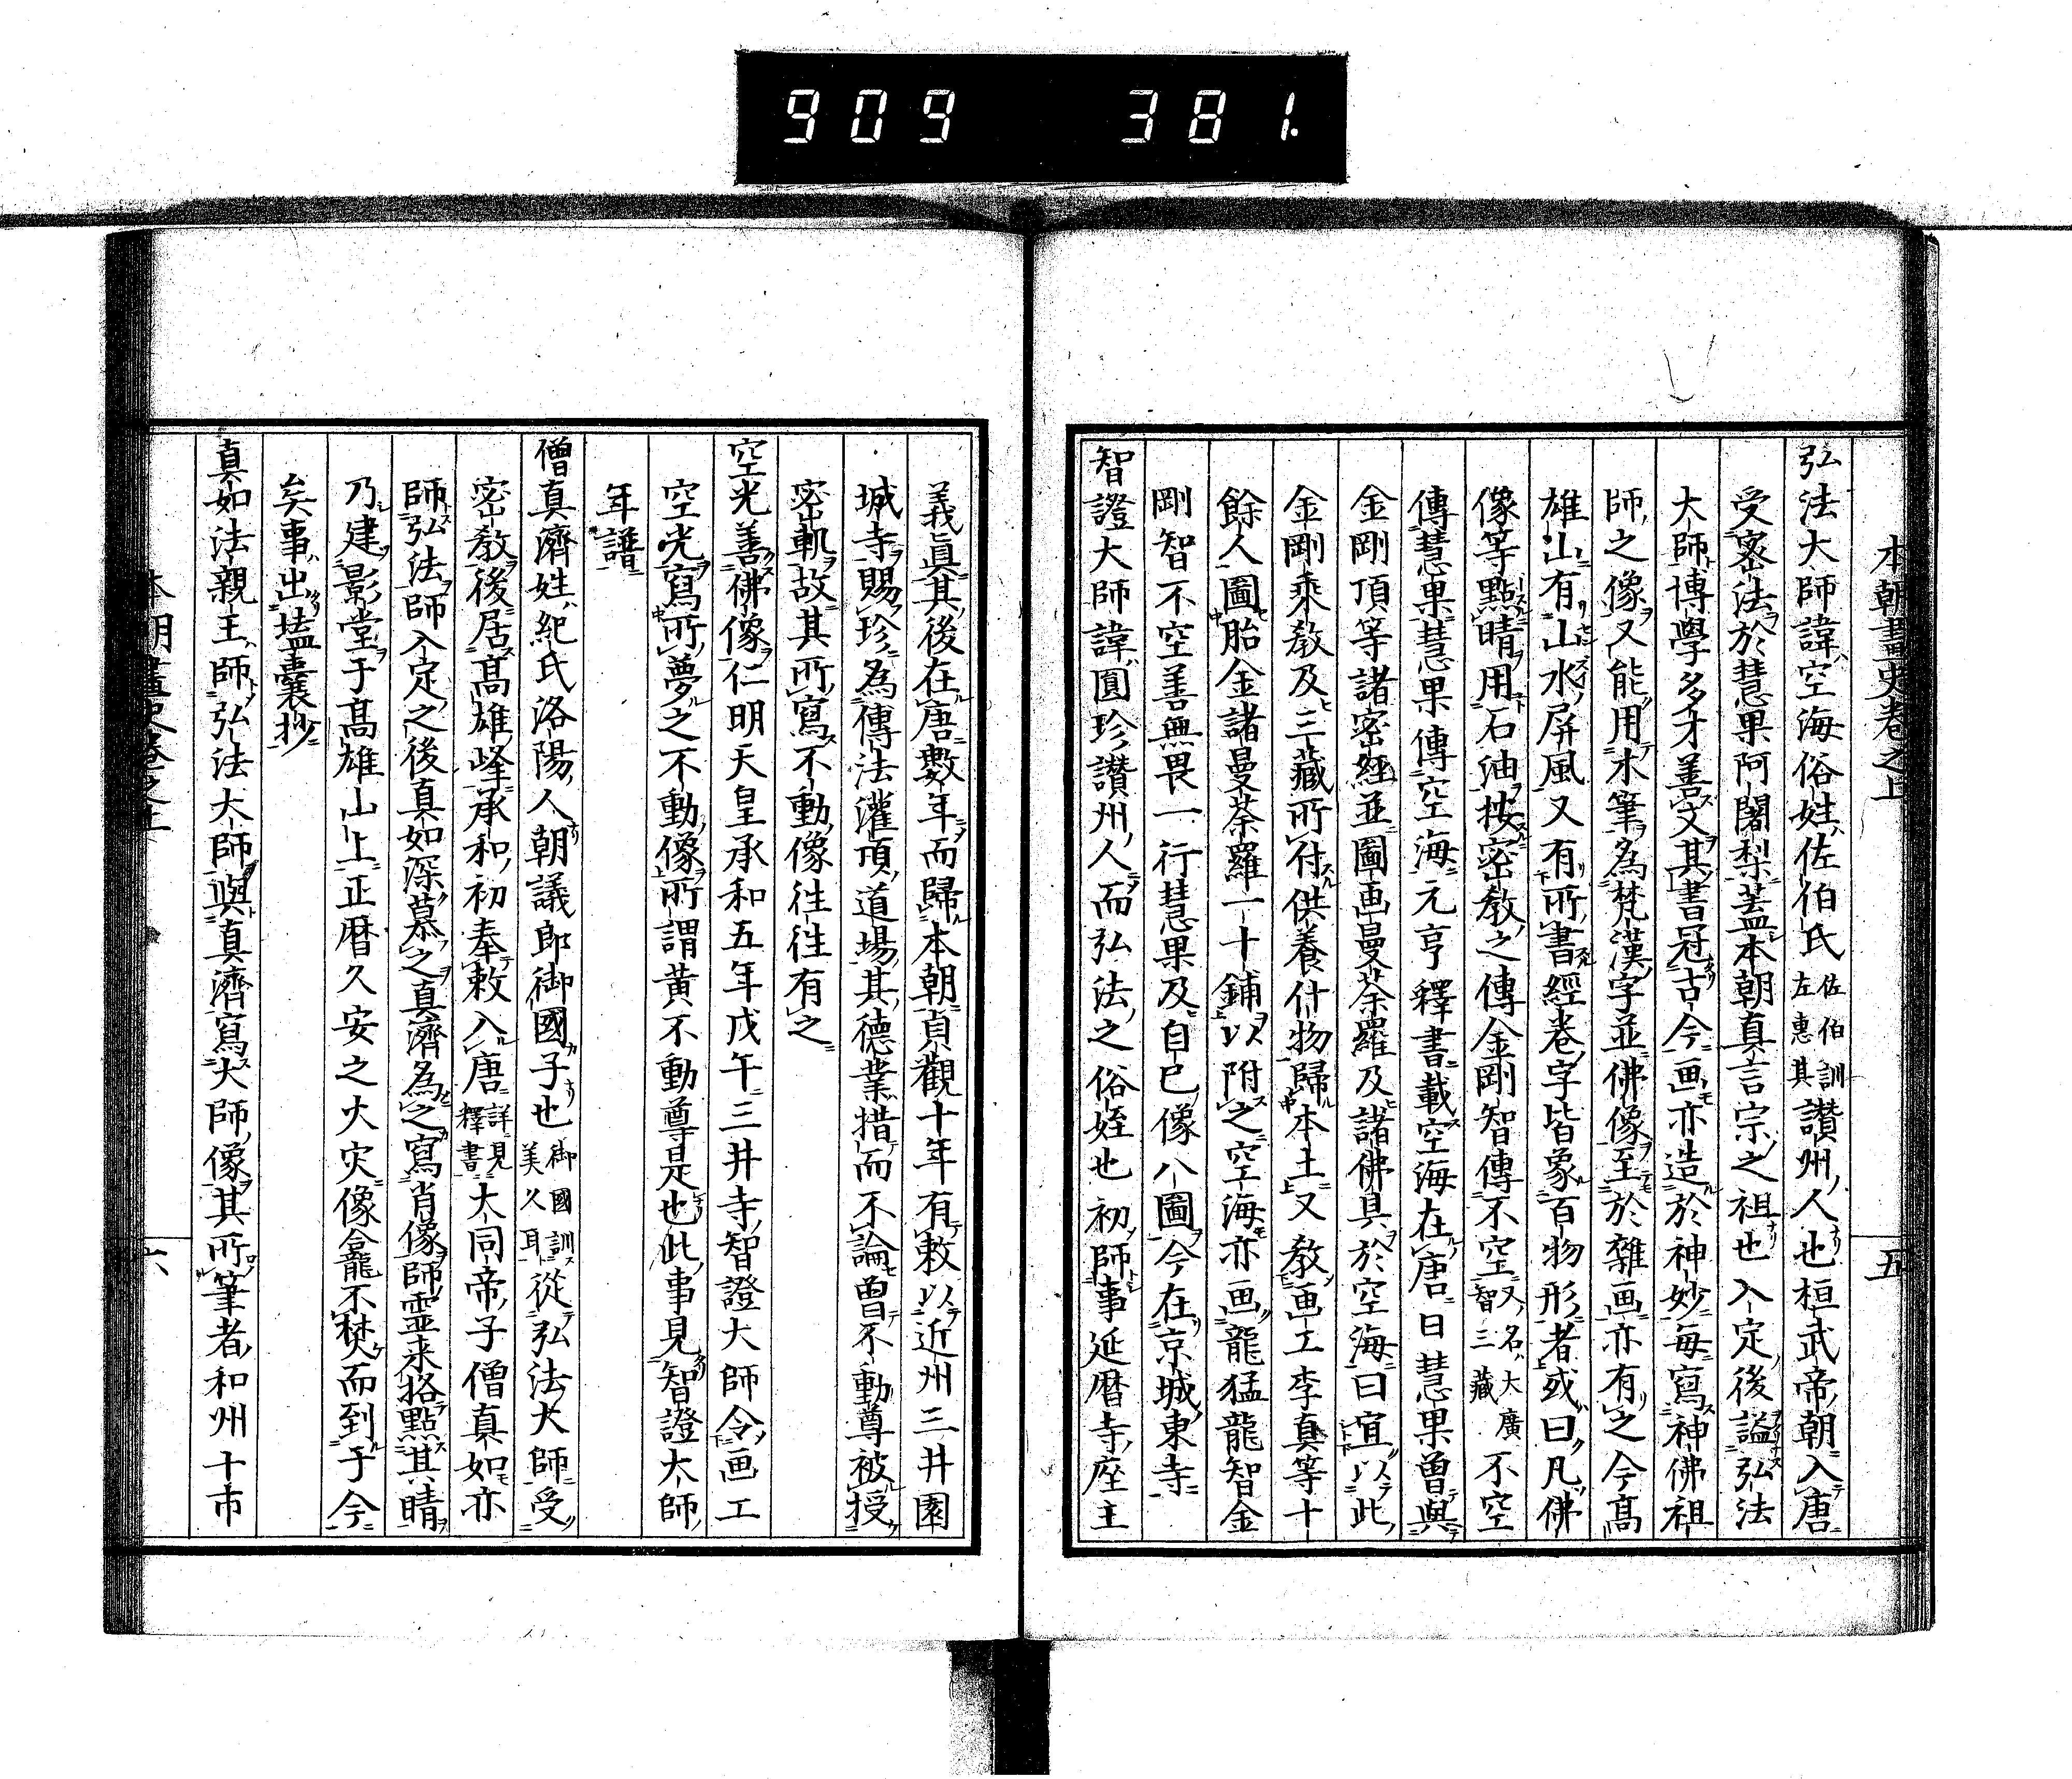 909 381.
本朝畫史卷之上 五
弘法大師諱空海俗姓佐伯氏佐伯訓左惠其讃州人也桓武帝朝入唐
受密法於慧果阿闍梨蓋本朝真言宗之祖也入定後謚弘法
大師博學多才善文其書冠古今画亦造於神妙每寫神佛祖
師之像又能用木筆為梵漢字並佛像至於雜画亦有之今髙
雄山有山水屏風又有所書經卷字皆象百物形者或曰凡佛
像等點睛用石油按密教之傳金剛智傳不空又名大廣智三藏不空
傳慧果慧果傳空海元亨釋書載空海在唐日慧果曽與
金剛頂等諸密經並圖画曼荼羅及諸佛具於空海曰宜以此
金剛乘教及三藏所付供養什物歸本土又教画工李真等十
餘人圖胎金諸曼荼羅一十鋪以附之空海亦画龍猛龍智金
剛智不空善無畏一行慧果及自己像八圖今在京城東寺
智證大師諱圓珍讃州人而弘法之俗姪也初師事延暦寺座主
義真其後在唐數年而歸本朝貞觀十年有敕以近州三井園
城寺賜珍為傳法灌頂道場其德業措而不論曽不動尊被授
密軌故其所寫不動像往往有之
空光善佛像仁明天皇承和五年戊午三井寺智證大師令画工
空光寫所夢之不動像所謂黄不動尊是也此事見智證大師
年譜
僧真濟姓紀氏洛陽人朝議郎御國子也御國訓美久耳從弘法大師受
密教後居髙雄峰承和初奉敕入唐詳見釋書大同帝子僧真如亦
師弘法師入定之後真如深慕之真濟為之寫肖像師霊来格點其睛
乃建影堂于髙雄山上正暦久安之火灾像龕不焚而到于今
矣事出壒囊抄
真如法親王師弘法大師與真濟寫大師像其所筆者和州十市
本朝畫史卷之上 六